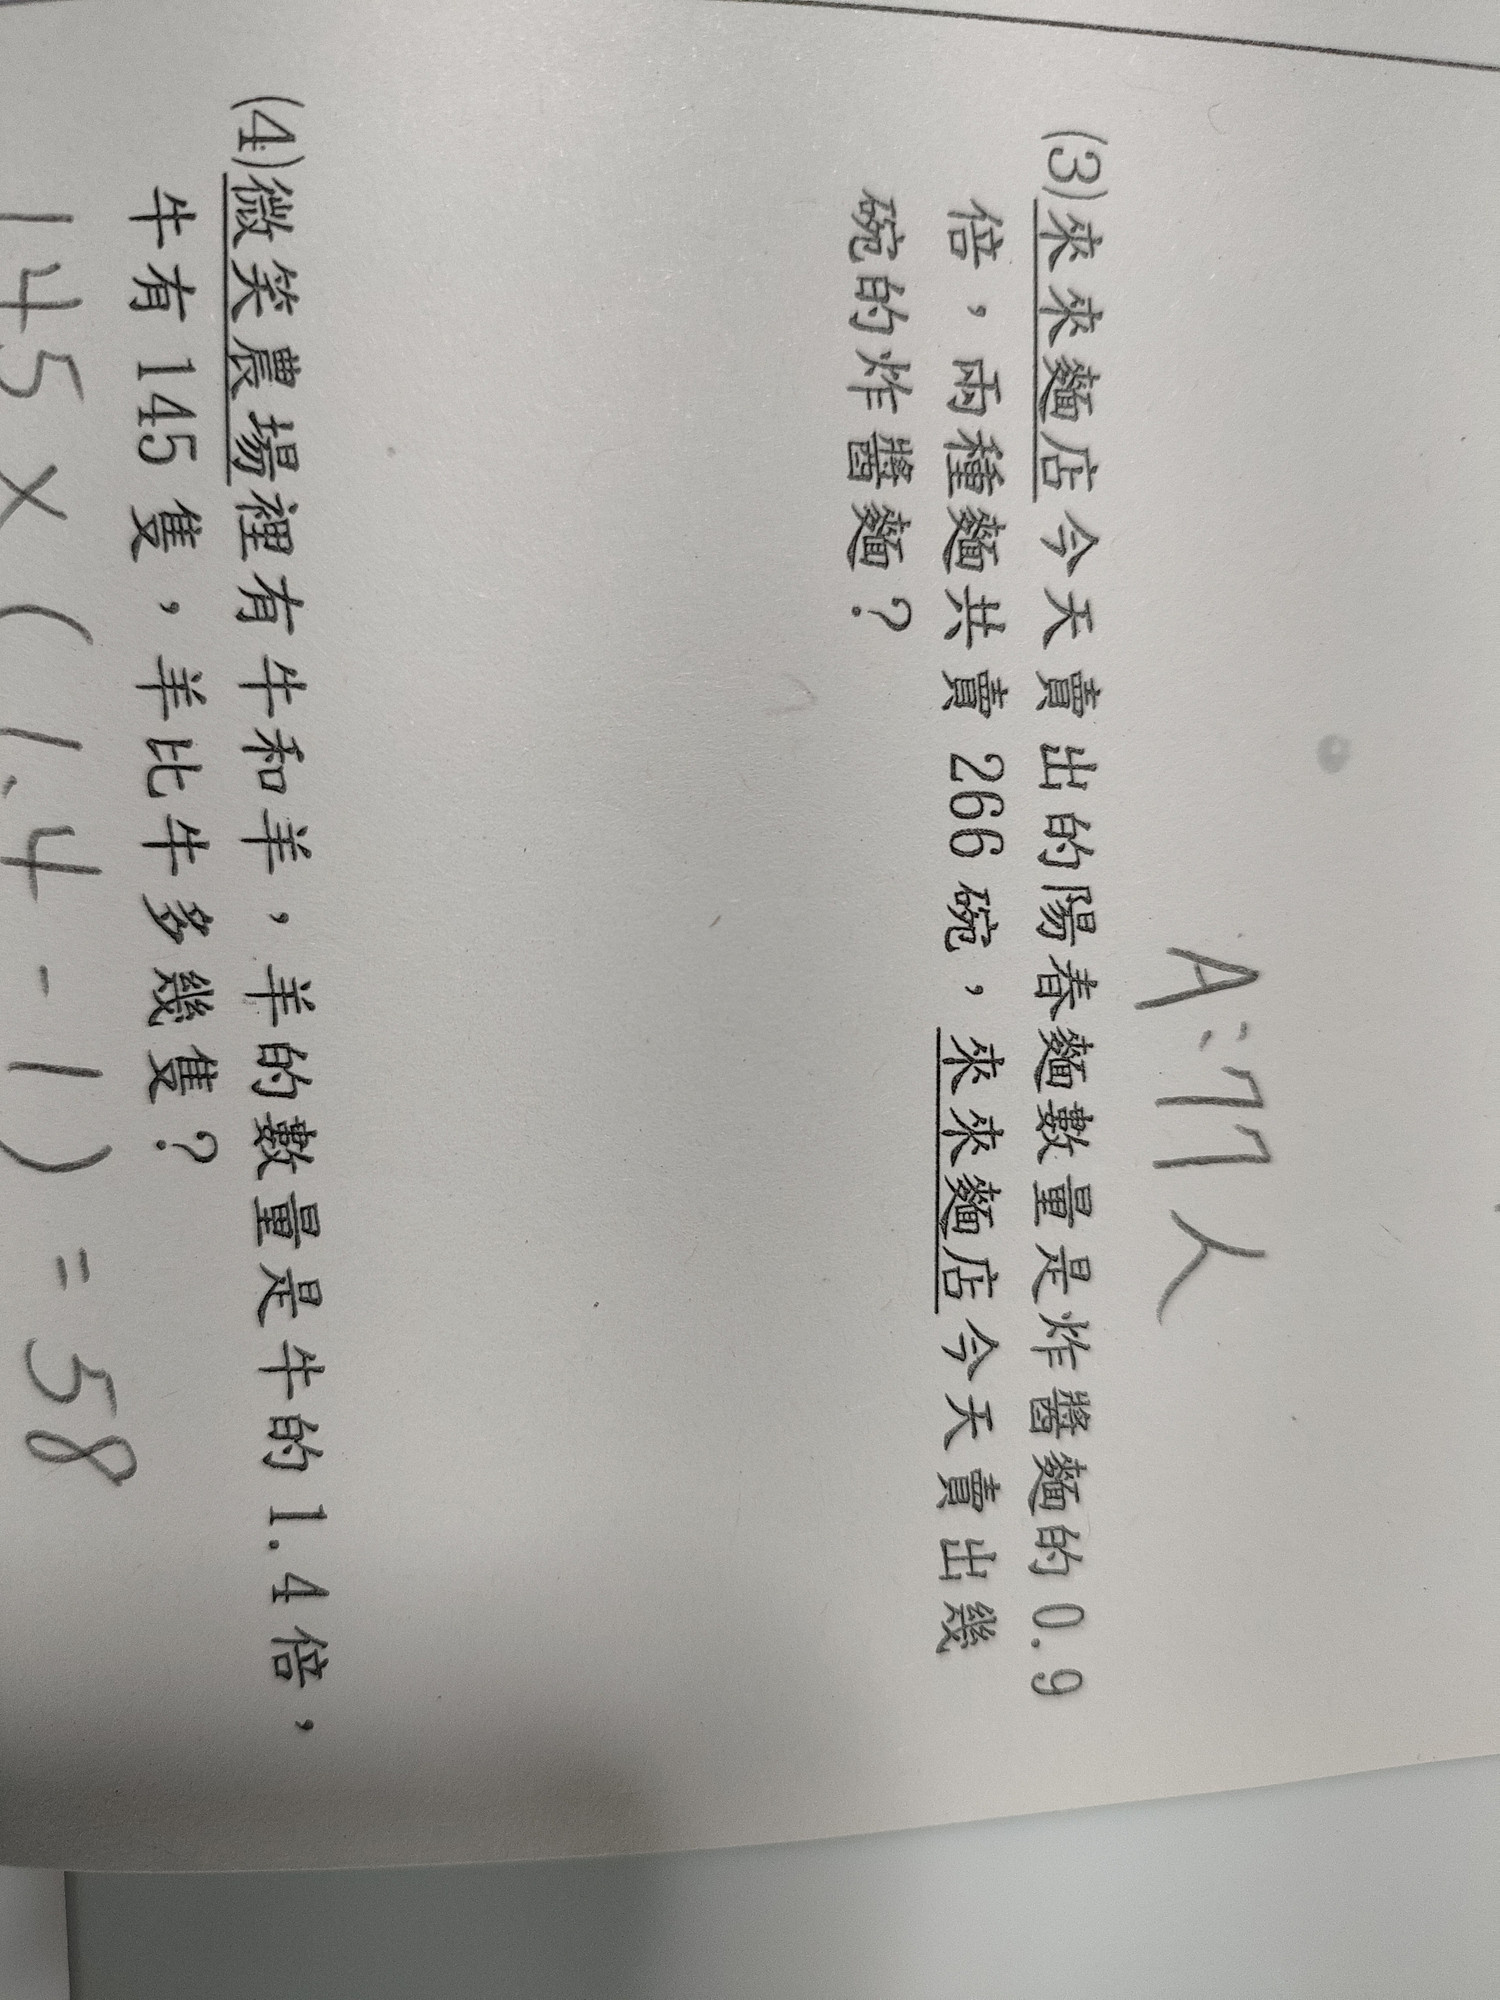 A:77人
(3)來來麵店今天賣出的陽春麵數量是炸醬麵的0.9
倍，兩種麵共賣266碗，來來麵店今天賣出幾
碗的炸醬麵？
(4)微笑農場裡有牛和羊，羊的數量是牛的1.4倍，
牛有145隻，羊比牛多幾隻？
145×(1.4-1)=58